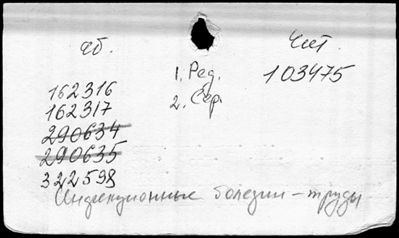 аб.
1. Ред.
2. Сер.
Чит.
103475
162316
162317
290634
290635
322598
Инфекционные болезни - труды